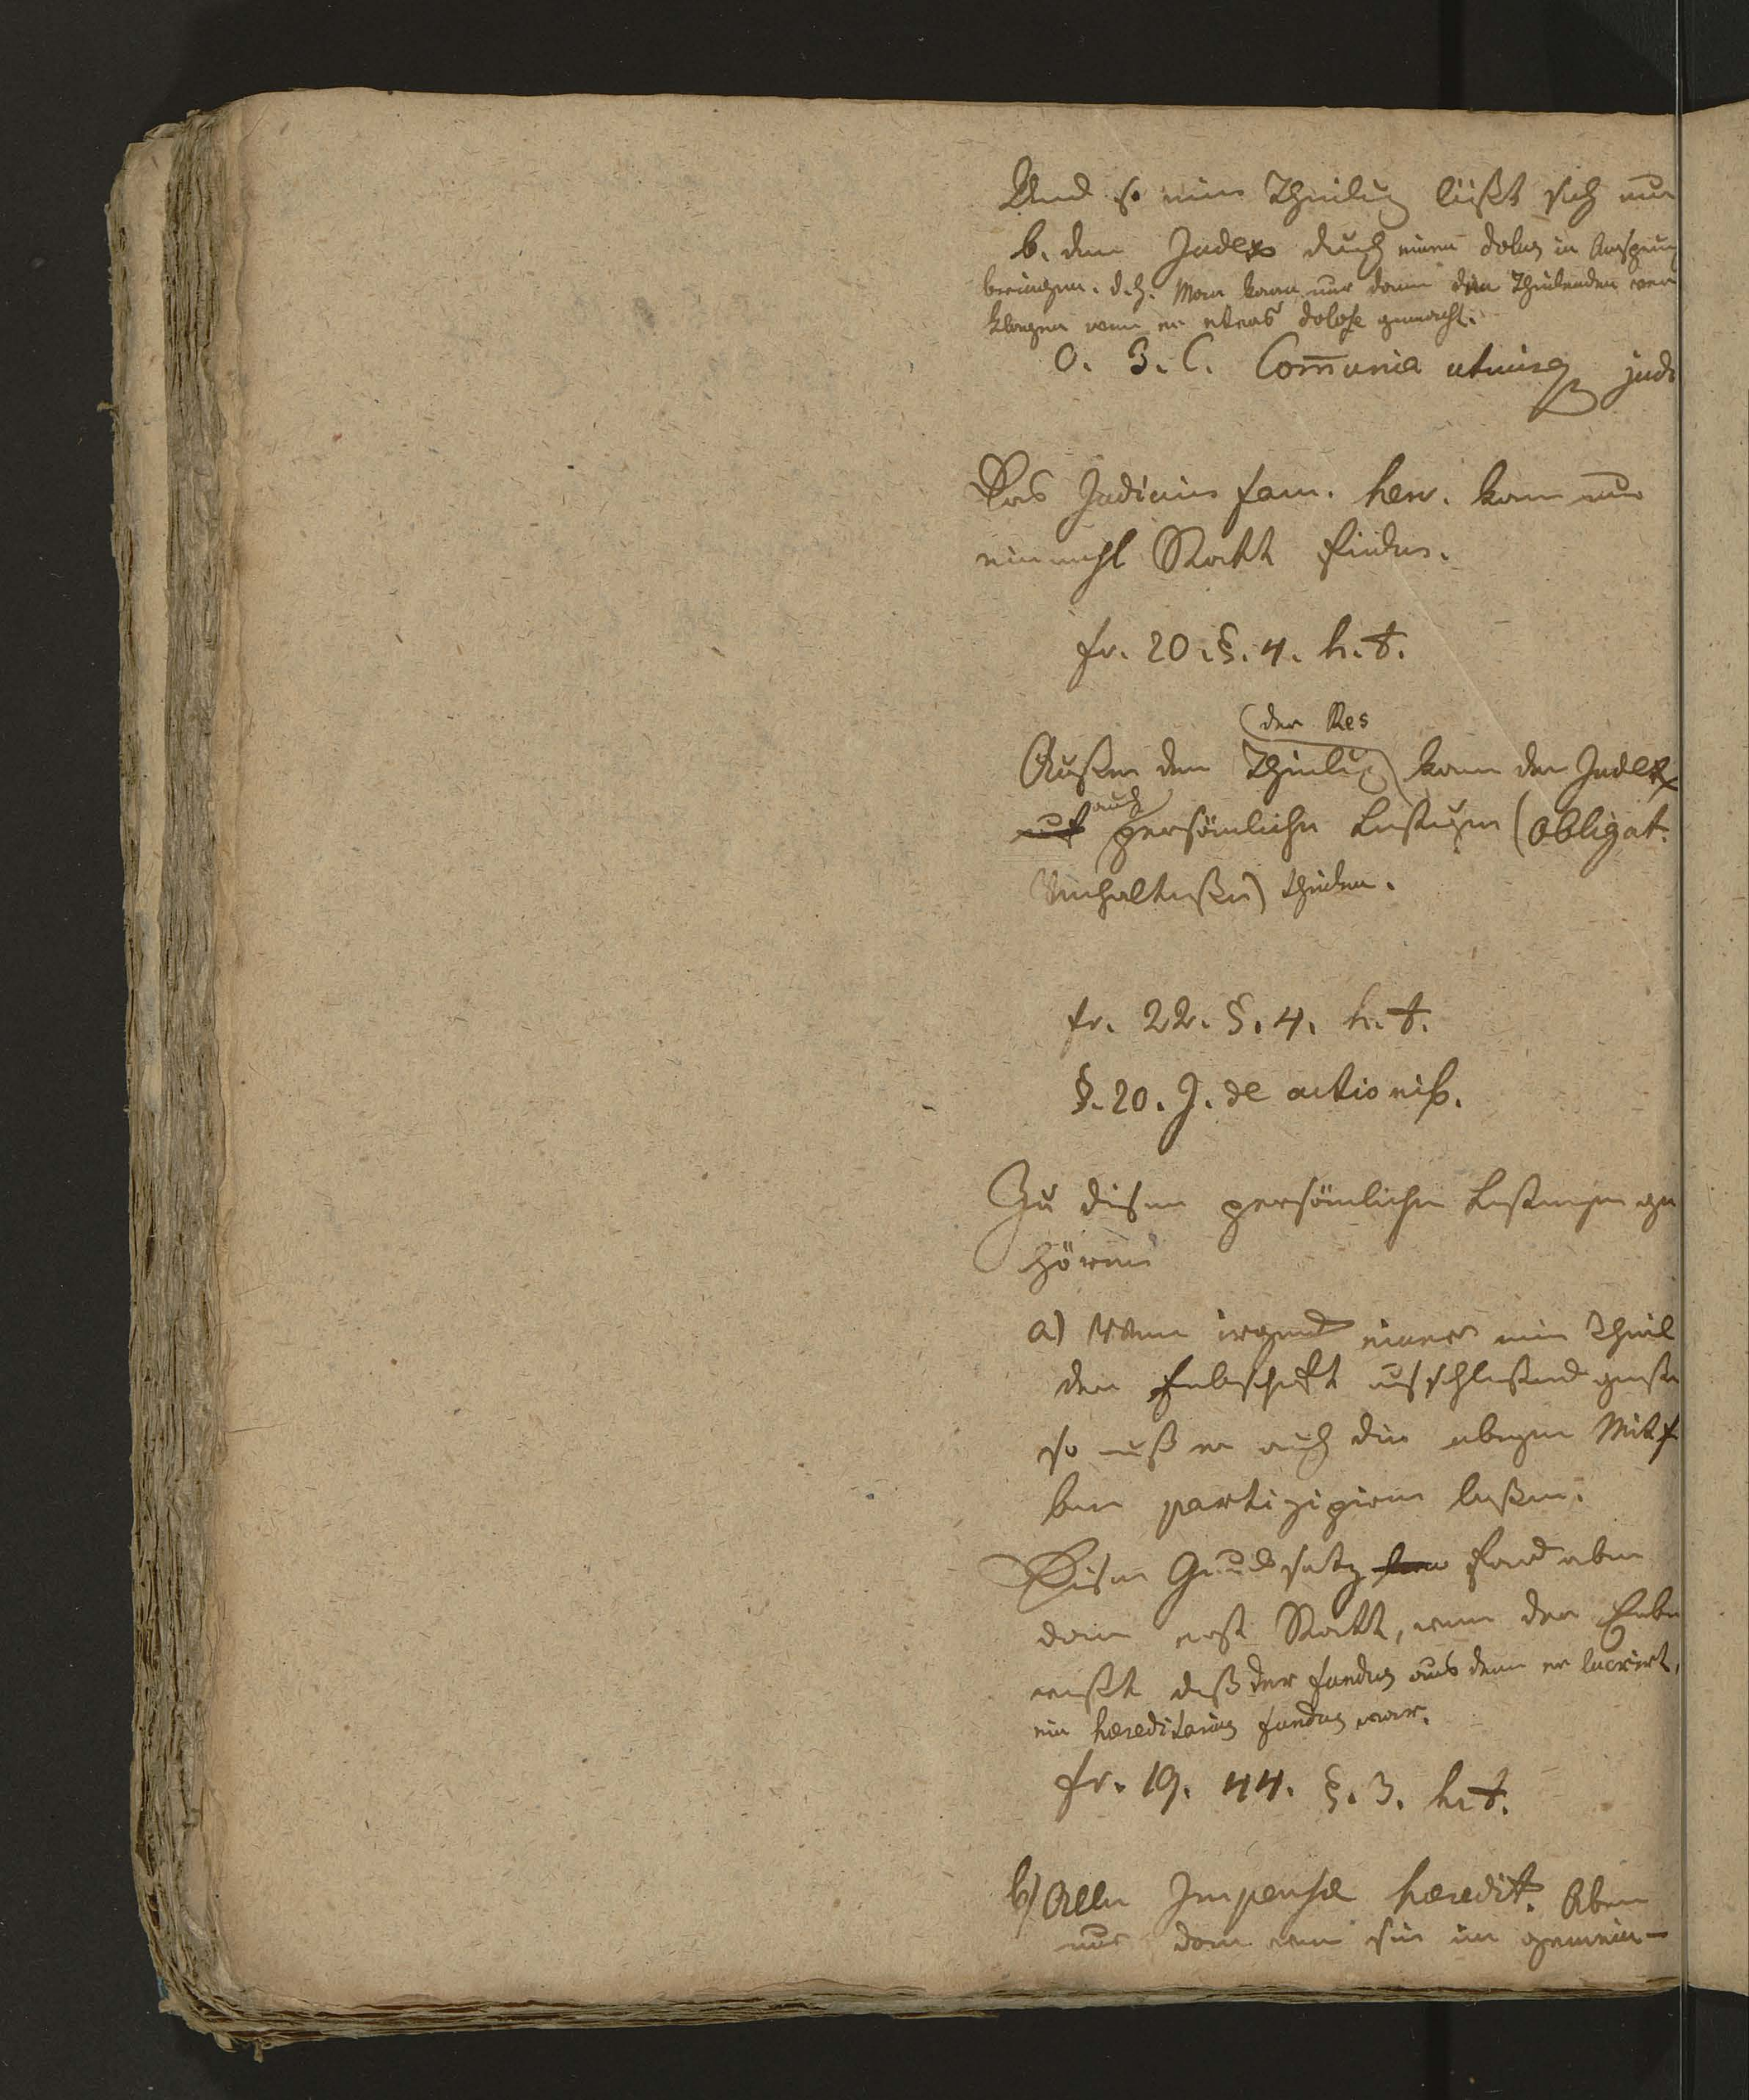 Und so eine Theilug läßt sich nur
b. dem Judex durch einen dolus in Anspruch
bringen. d.h. Man kann nur dann den Theilenden ver
klagen wenn er etwas dolose gemacht.
O. 3. C. Com̄unia utriusq jud
Das Judicium fam. herc. kann nur
einmahl Statt finden.
fr. 20. §. 4. h. t.
(der Res
Außer dem Theilug kann der Judex
auch
auf persönliche Leistugen (obligat.
Verhaltniße) theilen.
fr. 22. §. 4. h. t.
§. 20. J. de actionib.
Zu diesen persönlichen Leistungen ge
hören
a) Wenn irgend einer ein Theil
der Erbschaft ausschließend genoße
so muß er auch die übrigen Mit
ben partizipiren laßen.
Dieser Grundsatz fand aber
dann erst Statt, wenn der Erbe
wußte daß der fundus aus dem er lucrirt,
ein hereditarius fundus war.
fr. 19. 44. §. 3. h. t.
b) Alle Impensæ heredit. Aber
nur dann wenn sie im gemein-